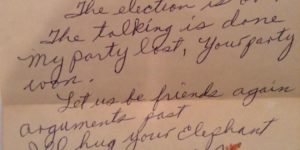 The election is
The talking is done
My party lost, Your party
won.
Let us be friends again
arguments past
I'll hug your Elephant